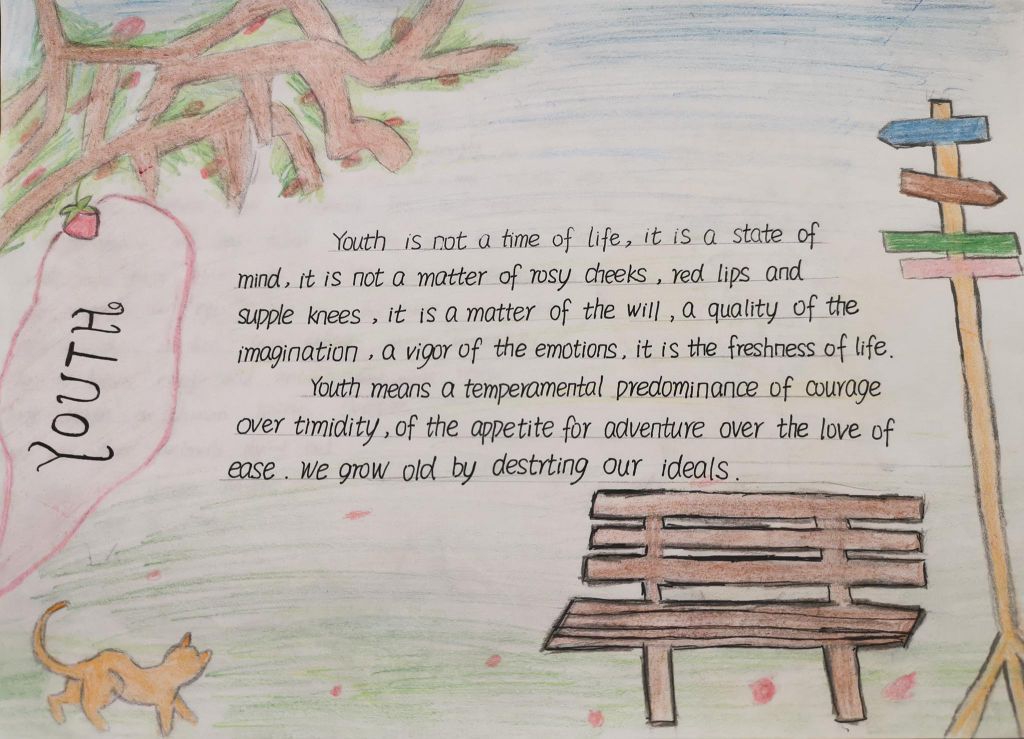 YOUTH
Youth is not a time of life, it is a state of
mind, it is not a matter of rosy cheeks, red lips and
supple knees, it is a matter of the will, a quality of the
imagination, a vigor of the emotions, it is the freshness of life.
Youth means a temperamental predominance of courage
over timidity, of the appetite for adventure over the love of
ease. We grow old by destrting our ideals.